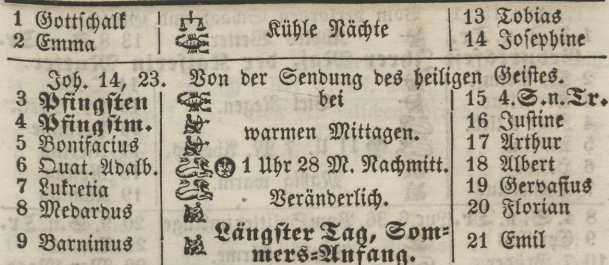 1 Gottschalk Kühle Nächte 13 Tobias
2 Emma 14 Josephine
Joh. 14, 23. Von der Sendung des heiligen Geistes.
3 Pfingsten bei 15 4.S.n.Tr.
4 Pfingstm. warmen Mittagen. 16 Justine
5 Bonifacius 17 Arthur
6 Quat. Adalb. 1 Uhr 28 M. Nachmitt. 18 Albert
7 Lukretia Veränderlich. 19 Gervasius
8 Medardus 20 Florian
9 Barnimus Längster Tag, Som- 21 Emil
mers-Anfang.